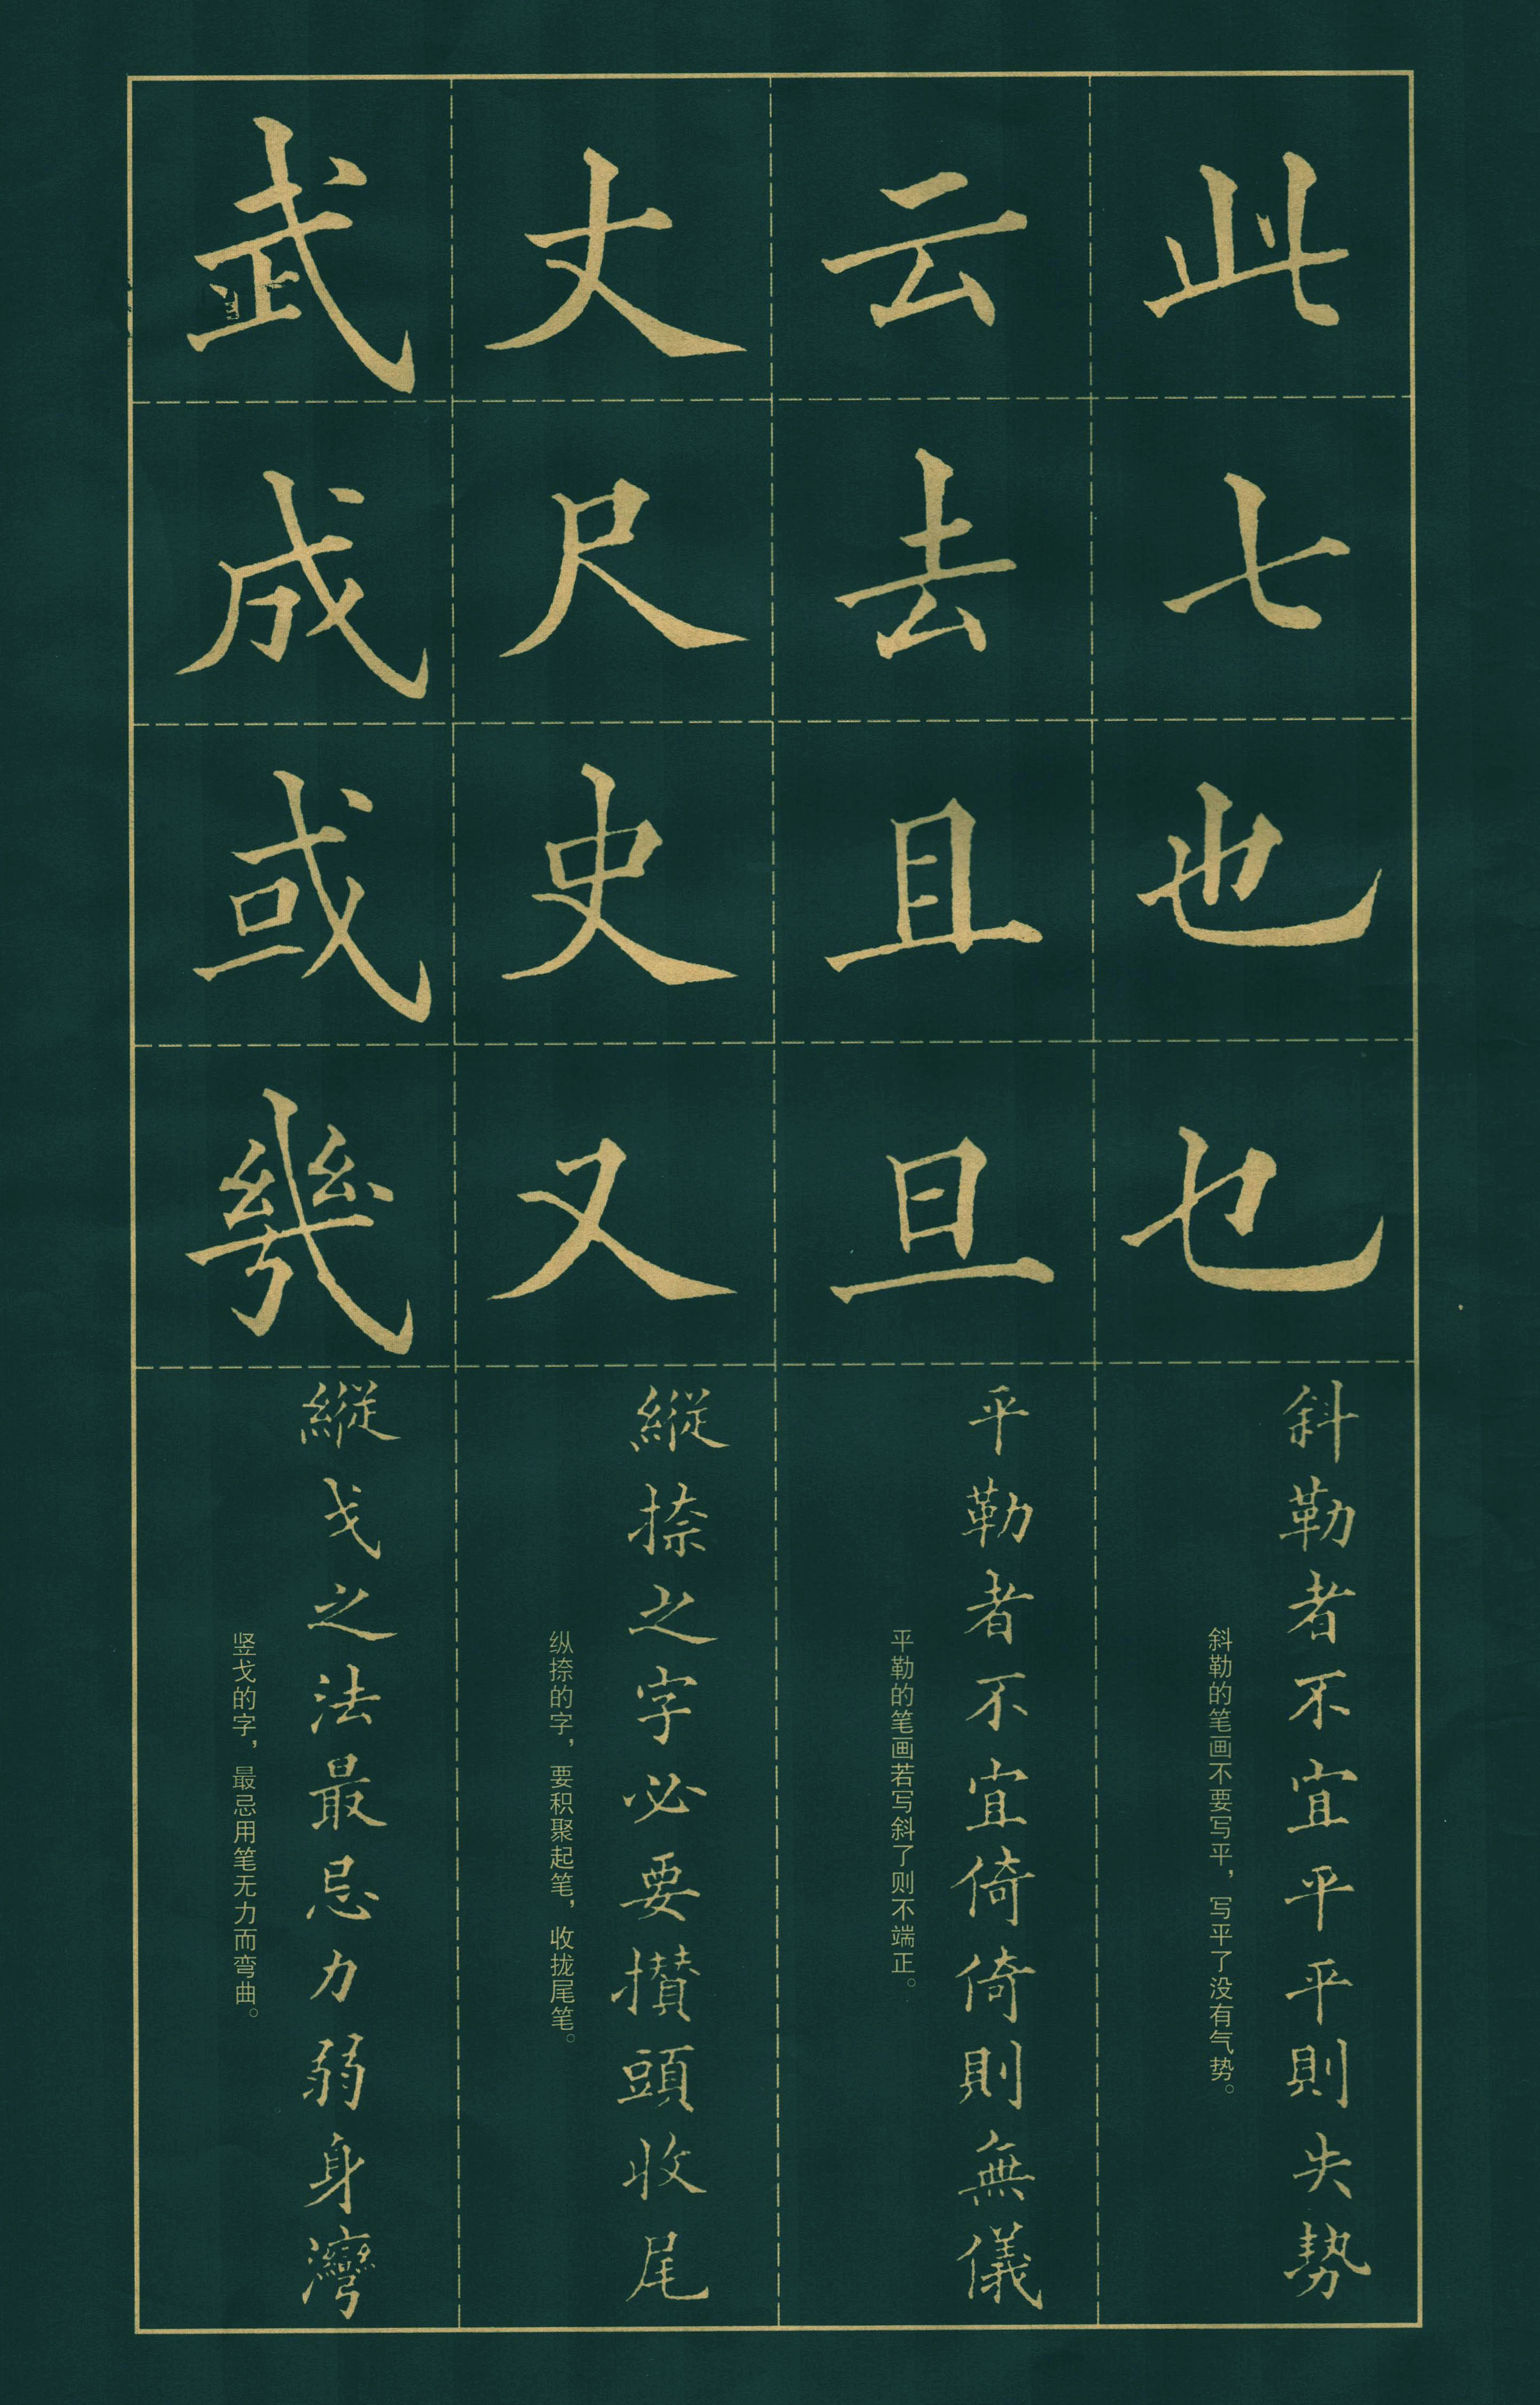 此七也乜
斜勒者不宜平平則失勢
斜勒的笔画不要写平，写平了没有气势。
云去且旦
平勒者不宜倚倚則無儀
平勒的笔画若写斜了则不端正。
丈尺史又
縱捺之字必要攢頭收尾
纵捺的字，要积聚起笔，收拢尾笔。
武成或幾
縱戈之法最忌力弱身灣
竖戈的字，最忌用笔无力而弯曲。